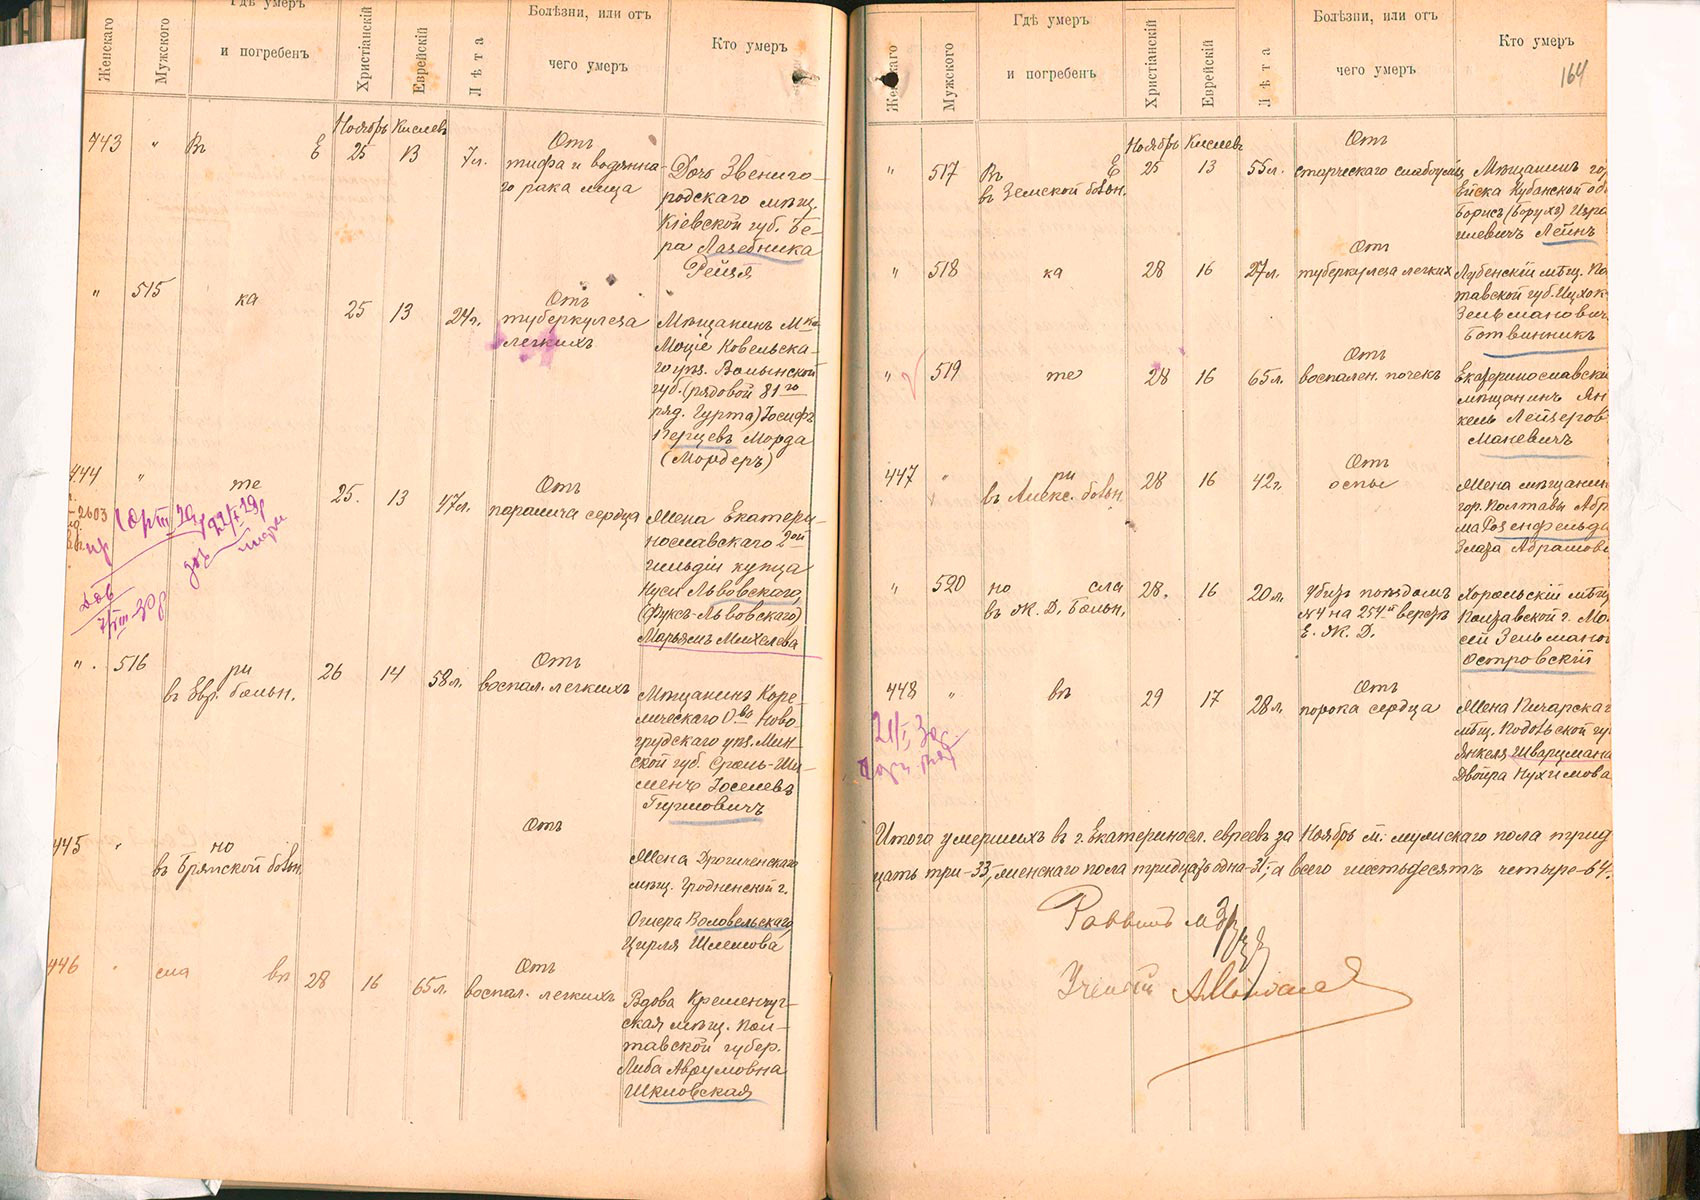 Женскаго
Мужского
Гдѣ умеръ
и погребенъ
Христіанскій
Еврейскій
Лѣта
Болѣзни, или отъ
чего умеръ
Кто умеръ
Ноябрь Кислевъ
443 " Въ Е 25 13 7 л.
Отъ
тифа и водянна-
го рака лица
Дочь Звениго-
родскаго мѣщ.
Кіевской губ. Бе-
ра Лазебника
Рейзя
" 515 ка 25 13 24 г.
Отъ
туберкулеза
легкихъ
Мѣщанинъ Мка
Моціе Ковельска-
го уѣз. Волынской
губ. (рядовой 81го
Іосифъ
Перцевъ Морда
(Мордеръ)
444 " те 25. 13 47 л.
Отъ
паралича сердца
Жена Екатери-
нославскаго 2ой
гильдіи купца
Нуси Львовскаго,
(Фуксъ-Львовскаго)
Марьямъ Михелева
" 516 ри 26 14 58 л.
въ Евр. больн.
Отъ
воспал. легкихъ
Мѣщанинъ Коре-
личскаго Ова Ново-
грудскаго уѣз. Мин-
ской губ. Сроль-Ши-
менъ Іоселевъ
Гиршовичъ
445 " но
въ Брянской больн.
Отъ
Жена Дрогиченскаго
мѣщ. Гродненской г.
Ошера Воловельскаго
Цирля Шлемова
446 " сла въ 28 16 65 л.
Отъ
воспал. легкихъ
Вдова Кременчуг-
ская мѣщ. Пол-
тавской губер.
Либа Аврумовна
Шкловская
Женскаго
Мужского
Гдѣ умеръ
и погребенъ
Христіанскій
Еврейскій
Лѣта
Болѣзни, или отъ
чего умеръ
Кто умеръ
164
Ноябрь Кислевъ
" 517 Въ Е 25 13 55 л.
въ Земской больн.
Отъ
старческаго слабоумія
Мѣщанинъ гор
Ейска Кубанской об
Борисъ (Борухъ) Изра
илевичъ Лейнъ
" 518 ка 28 16 27 л.
Отъ
туберкулеза легкихъ
Лубенскій мѣщ. По
тавской губ. Ицхок-
Зельмановичъ
Ботвинникъ
" 519 те 28 16 65 л.
Отъ
воспален. почекъ
Екатеринославскі
мѣщанинъ Ян
кель Лейзеров
Маневичъ
447 " ри 28 16 42 г.
въ Алекс. больн.
Отъ
оспы
Жена мѣщанин
гор. Полтавы Абр
ма Розенфельда
Злата Абрамов
" 520 но сла 28. 16 20 л.
въ Ж. Д. Больн.
Убитъ поѣздомъ
№4 на 254й верстѣ
Е. Ж. Д.
Хорольскій мѣщ
Полтавской г. Мо
сей Зельманов
Островскій
448 " въ 29 17 28 л.
Отъ
порока сердца
Жена Пичарскаг
мѣщ. Подольской гу
Янкеля Шварцмана
Двойра Нухимова
Итого умершихъ въ г. Екатеринославл. евреевъ за Ноябрь м: мужскаго пола трид
цать три-33, женскаго пола тридцать одна-31; а всего шестьдесятъ четыре-64.
Раввинъ
Ученый